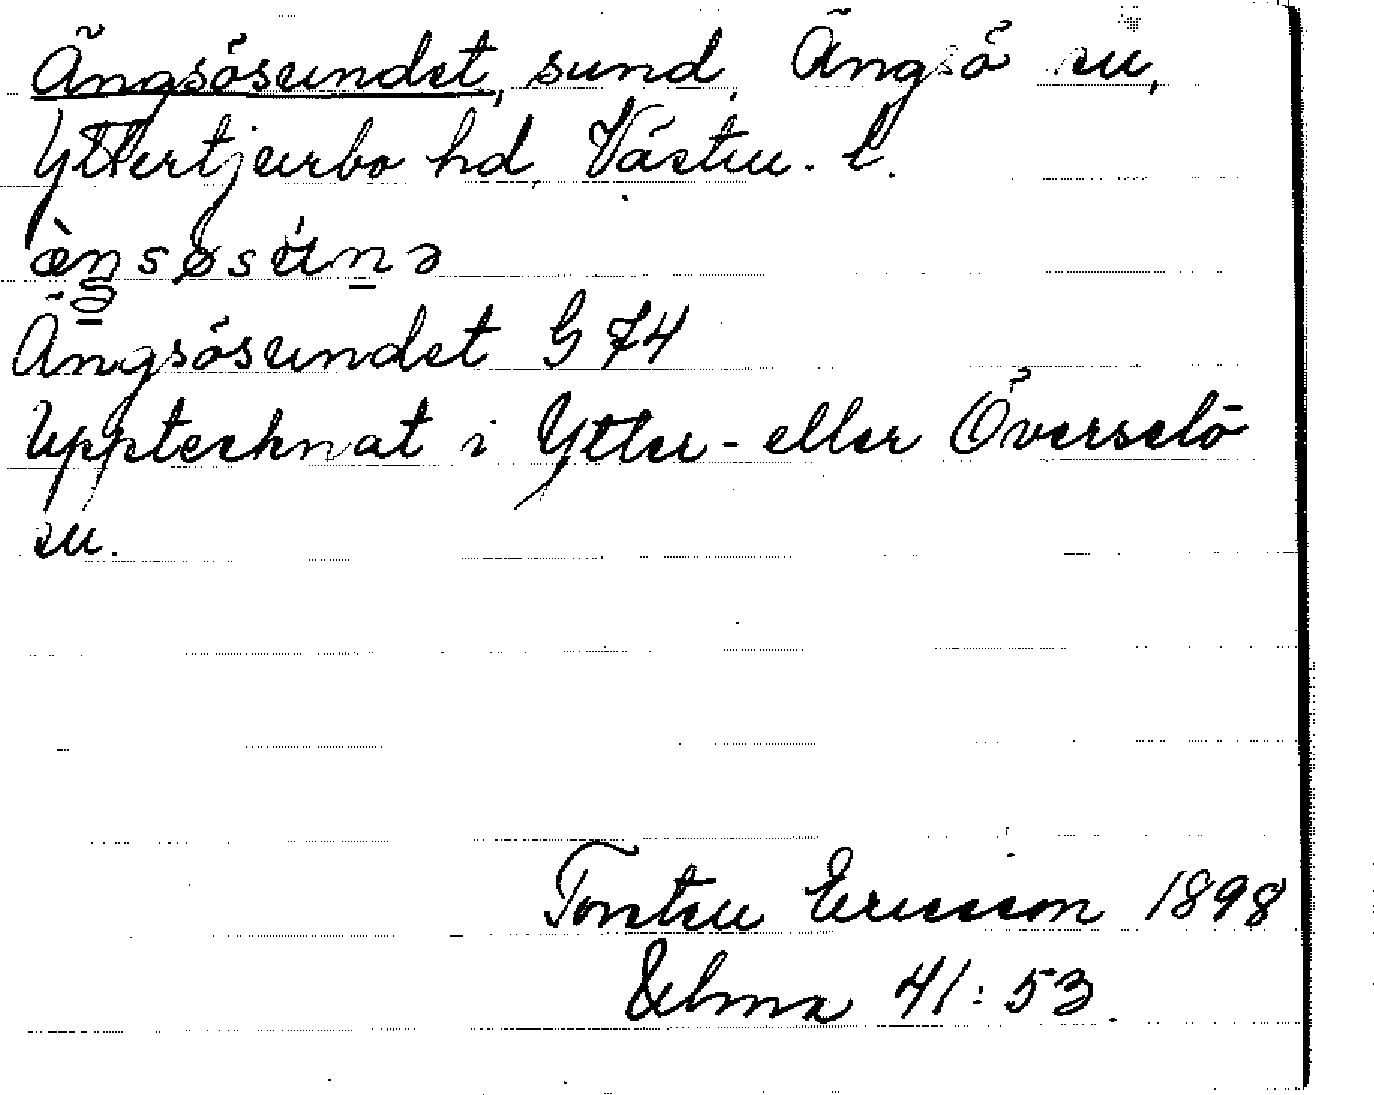 Ängsösundet, sund, Ängsö sn,
Yttertjurbo hd, Västm. l.
ὲŋsøsùnə
Ängsösundet G 74
Upptecknat i Ytter- eller Överselö
sn.
Torsten Ericsson 1898
Uhma 41:53.